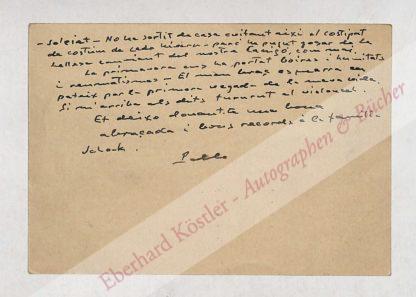 -solejat- No he sortit de casa evitant així el costipat
de costum de cada hivern - però he pogut gosar de la
bellesa del nostre Canigó, com mai.
La primavera ens ha portat boires i humitats
i reumatismes - El meu braç esquerra en
pateix per la primera vegada de la meva vida.
Si m'arriba als dits tururut el violoncel.
Et deixo donant-te una bona
abraçada i bons records a la família
Schock. Pablo
Eberhard Köstler - Autographen & Bücher